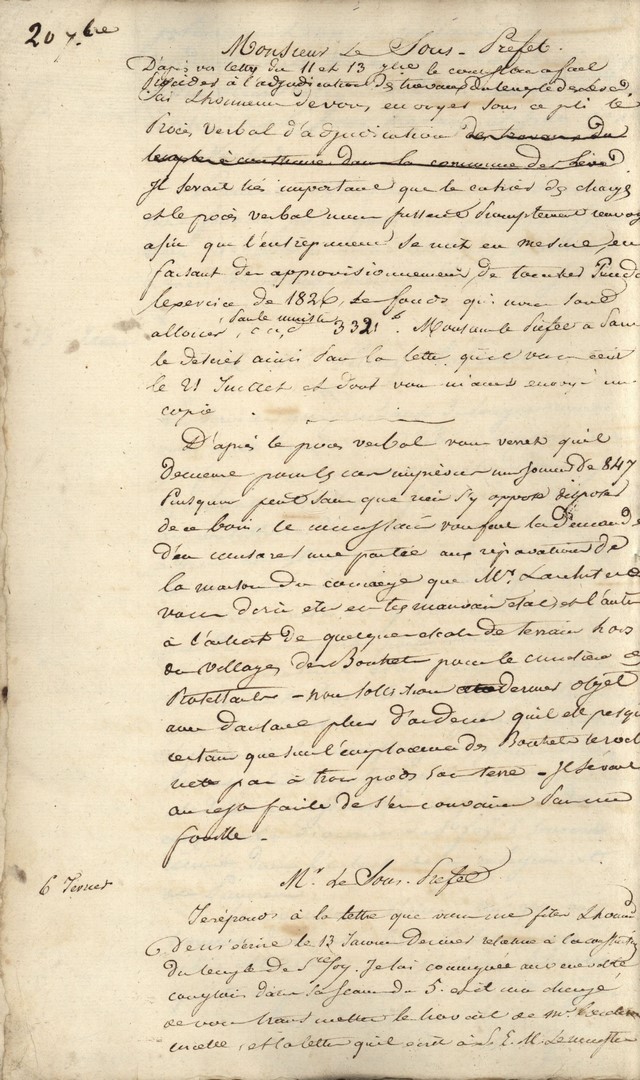 20 7bre
Monsieur Le Sous-Prefet.
D'après vos lettres du 11 et 13 9bre le consistoire a fait
procéder à l'adjudication des travaux du temple des Lèves
J'ai L'honneur de vous envoyer sous ce pli le
Procès verbal d'adjudication des travaux du
temple à construire dans la commune des Lèves
Il serait très important que le cahier des charges
et le procès verbal nous fussent promptement renvoyé
afin que l'entrepreneur se mit en mesure, en
faisant des approvisionnements, de toucher
l'exercice de 1826, les fonds qui nous sont
alloués, par le ministre 3321 f. Monsieur le Préfet a
le désiré ainsi dans la lettre qu'il vous écrit
le 21 Juillet et dont vous m'avez envoyé une
copie.
D'après le procès verbal vous verrez qu'il
demeure pour les cas imprévus une somme de 847
Puisqu'on peut sans que rien s'y oppose disposer
de ce boni, le consistoire vous fait la demande
d'en consacrer une partie aux réparations de
la maison du concierge que Mr.
vous dira être en très mauvais état et l'autre
à l'achat de quelques escats de terrain hors
du village des Bouhets pour le cimetière des
Protestants - nous sollicitons dernier objet
avec d'autant plus d'ardeur qu'il est presque
certain que sur l'emplacement des Bouhets le roc
n'est pas à trois pieds sous terre - Il serait
au reste facile de s'en convaincre par une
fouille -
6 fevrier
Mr Le Sous-Prefet
Je réponds à la lettre que vous me fites L'honneur
de m'écrire le 13 Janvier dernier relative à la
du temple de Ste foy. Je l'ai comuniquée au
dans sa séance du 5. et il m'a chargé
de vous transmettre le travail de mr.
, et la lettre qu'il écrit à S. E. M. Le ministre